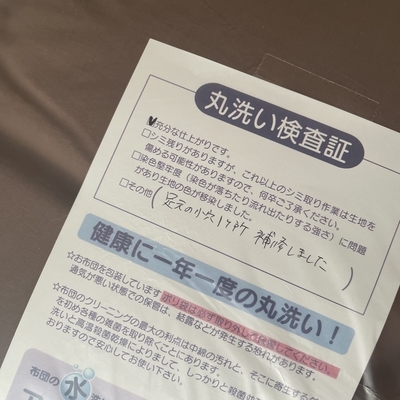 丸洗い検査証
☑充分な仕上がりです。
□シミ残りがありますが、これ以上のシミ取り作業は生地を
傷める可能性がありますので、何卒ご了承ください。
□染色堅牢度(染色が落ちたり流れ出たりする強さ)に問題
があり生地の色が移染しました。
□その他(足元の小穴1ヶ所 補修しました)
健康に一年一度の丸洗い!
☆お布団を包装していますポリ袋は必ず取り外し、保管してください。
通気が悪い状態での保管は、結露などが発生する恐れがあります。
☆布団のクリーニングの最大の利点は中綿の汚れと、そこに寄生する
を初め各種の雑菌を取り除くことにあります。
洗いと高温殺菌乾燥によりまして、しっかりと殺菌
おりますので安心してお使い下さい。
布団の水